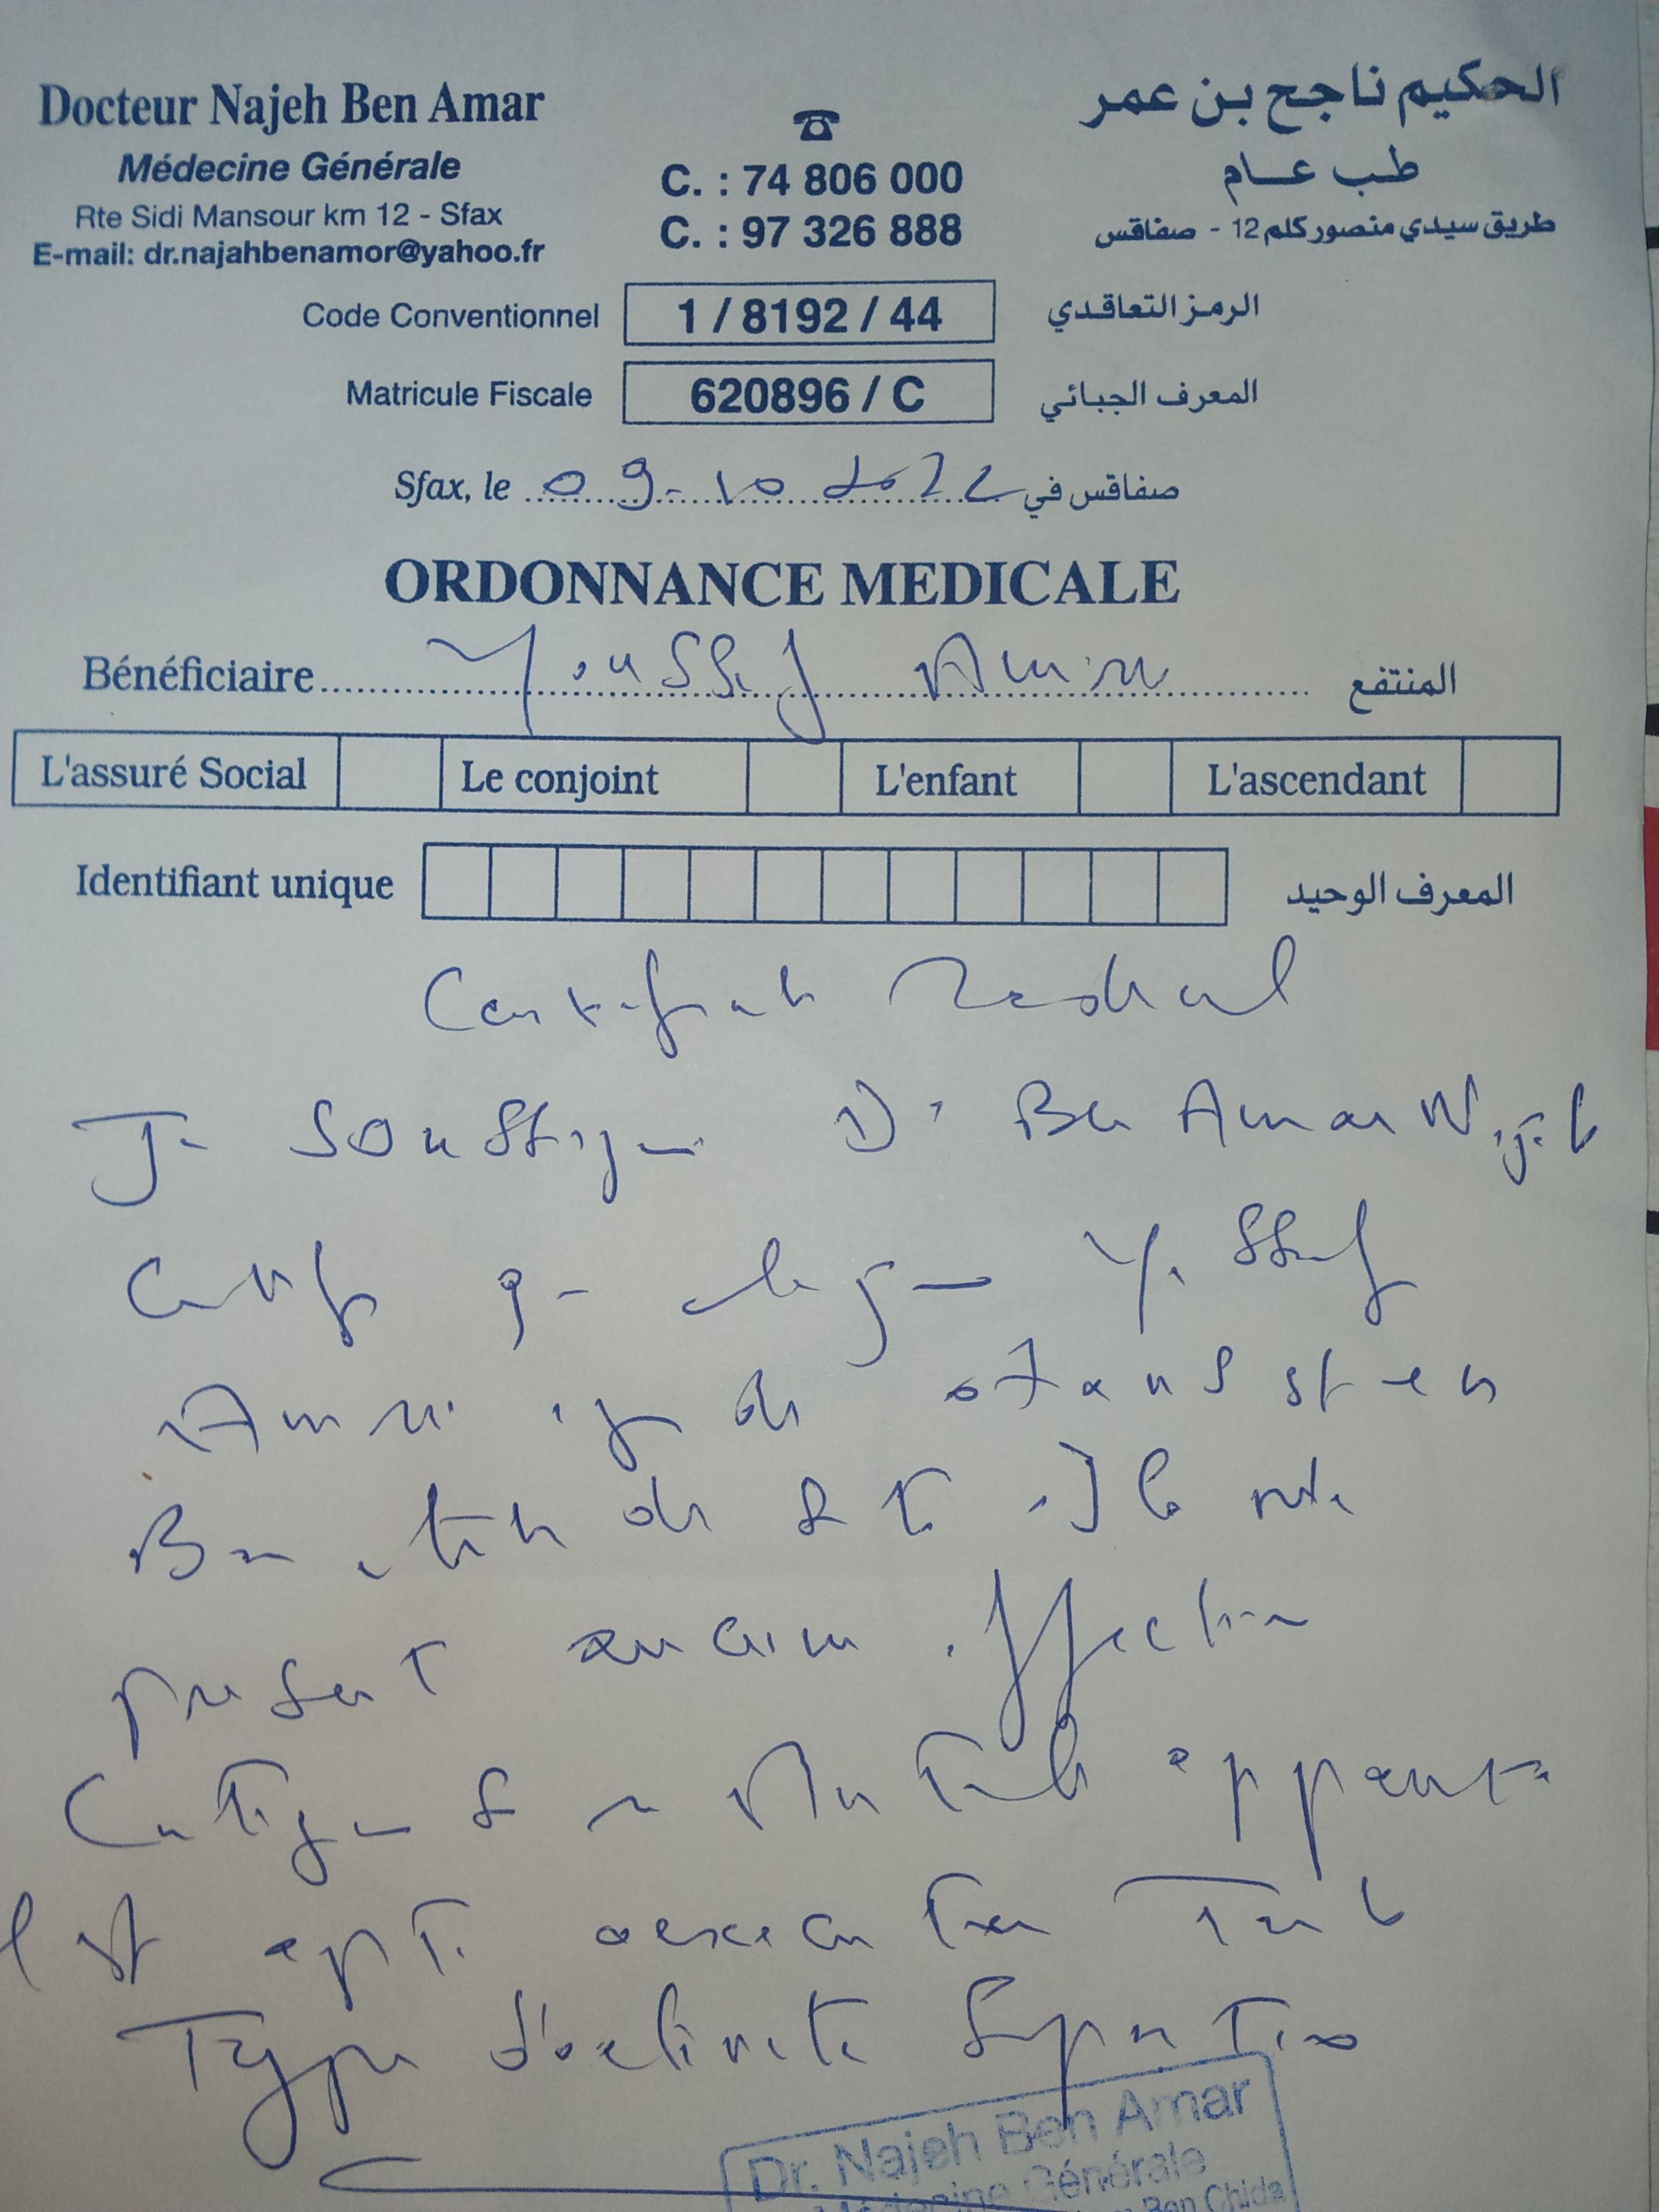 Docteur Najeh Ben Amar
Médecine Générale
Rte Sidi Mansour km 12 - Sfax
E-mail: dr.najahbenamor@yahoo.fr
☎
C. : 74 806 000
C. : 97 326 888
الحكيم ناجح بن عمر
طب عام
طريق سيدي منصور كلم 12 - صفاقس
Code Conventionnel 1 / 8192 / 44 الرمز التعاقدي
Matricule Fiscale 620896 / C المعرف الجبائي
Sfax, le 09-10 2022 صفاقس في
ORDONNANCE MEDICALE
Bénéficiaire Youssef المنتفع
L'assuré Social Le conjoint L'enfant L'ascendant
Identifiant unique المعرف الوحيد
Certificat Medical
Je soussigne Dr Ben Amar Najeh
Certifie que le jeune Youssef
age de ans est en
Bon etat de sante Il ne
present aucune affection
Contagieuse apparente
Il est apte a executer Tout
Type d'activite Sportive
Dr. Najeh Ben Amar
Médecine Générale
Ben Chida